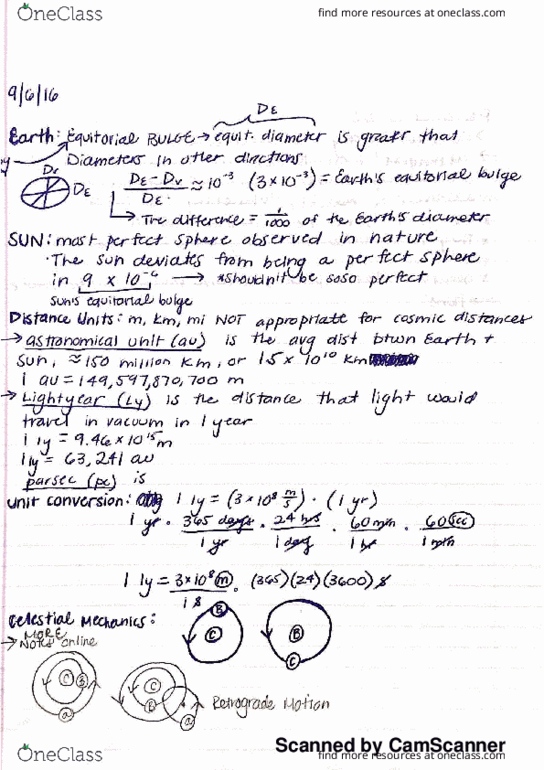 OneClass
find more resources at oneclass.com
9/6/16
DE
Earth: Equitorial BULGE → equit. diameter is greater that
Diameters in other directions
Dv
DE
DE - Dv / DE ≈ 10^-3 (3 x 10^-3) = Earth's equitorial bulge
The difference = 1/1000 of the Earth's diameter
SUN: most perfect sphere observed in nature
· The sun deviates from being a perfect sphere
in 9 x 10^-6 → *shouldn't be soso perfect
sun's equitorial bulge
Distance Units: m, km, mi NOT appropriate for cosmic distances
→ astronomical unit (au) is the avg dist btwn Earth +
Sun, ≈ 150 million km, or 1.5 x 10^10 km
1 au = 149,597,870,700 m
→ Lightyear (Ly) is the distance that light would
travel in vacuum in 1 year
1 ly = 9.46 x 10^15 m
1 ly = 63,241 au
parsec (pc) is
unit conversion: 1 ly = (3 x 10^8 m/s) · (1 yr)
1 yr · 365 days / 1 yr · 24 hrs / 1 day · 60 min / 1 hr · 60 sec / 1 min
1 ly = 3 x 10^8 m / 1 s · (365)(24)(3600) s
Celestial Mechanics:
B
C
B
C
→ MORE Notes online
C
B
a
C
B
a
Retrograde Motion
Scanned by CamScanner
OneClass
find more resources at oneclass.com